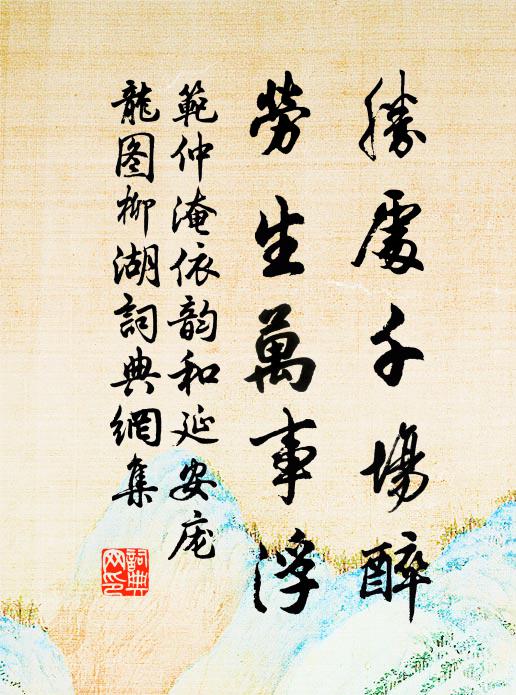 勝處千場醉
勞生萬事浮
範仲淹依韵和延安庞
龍图柳湖詞典網集
詞典
网印